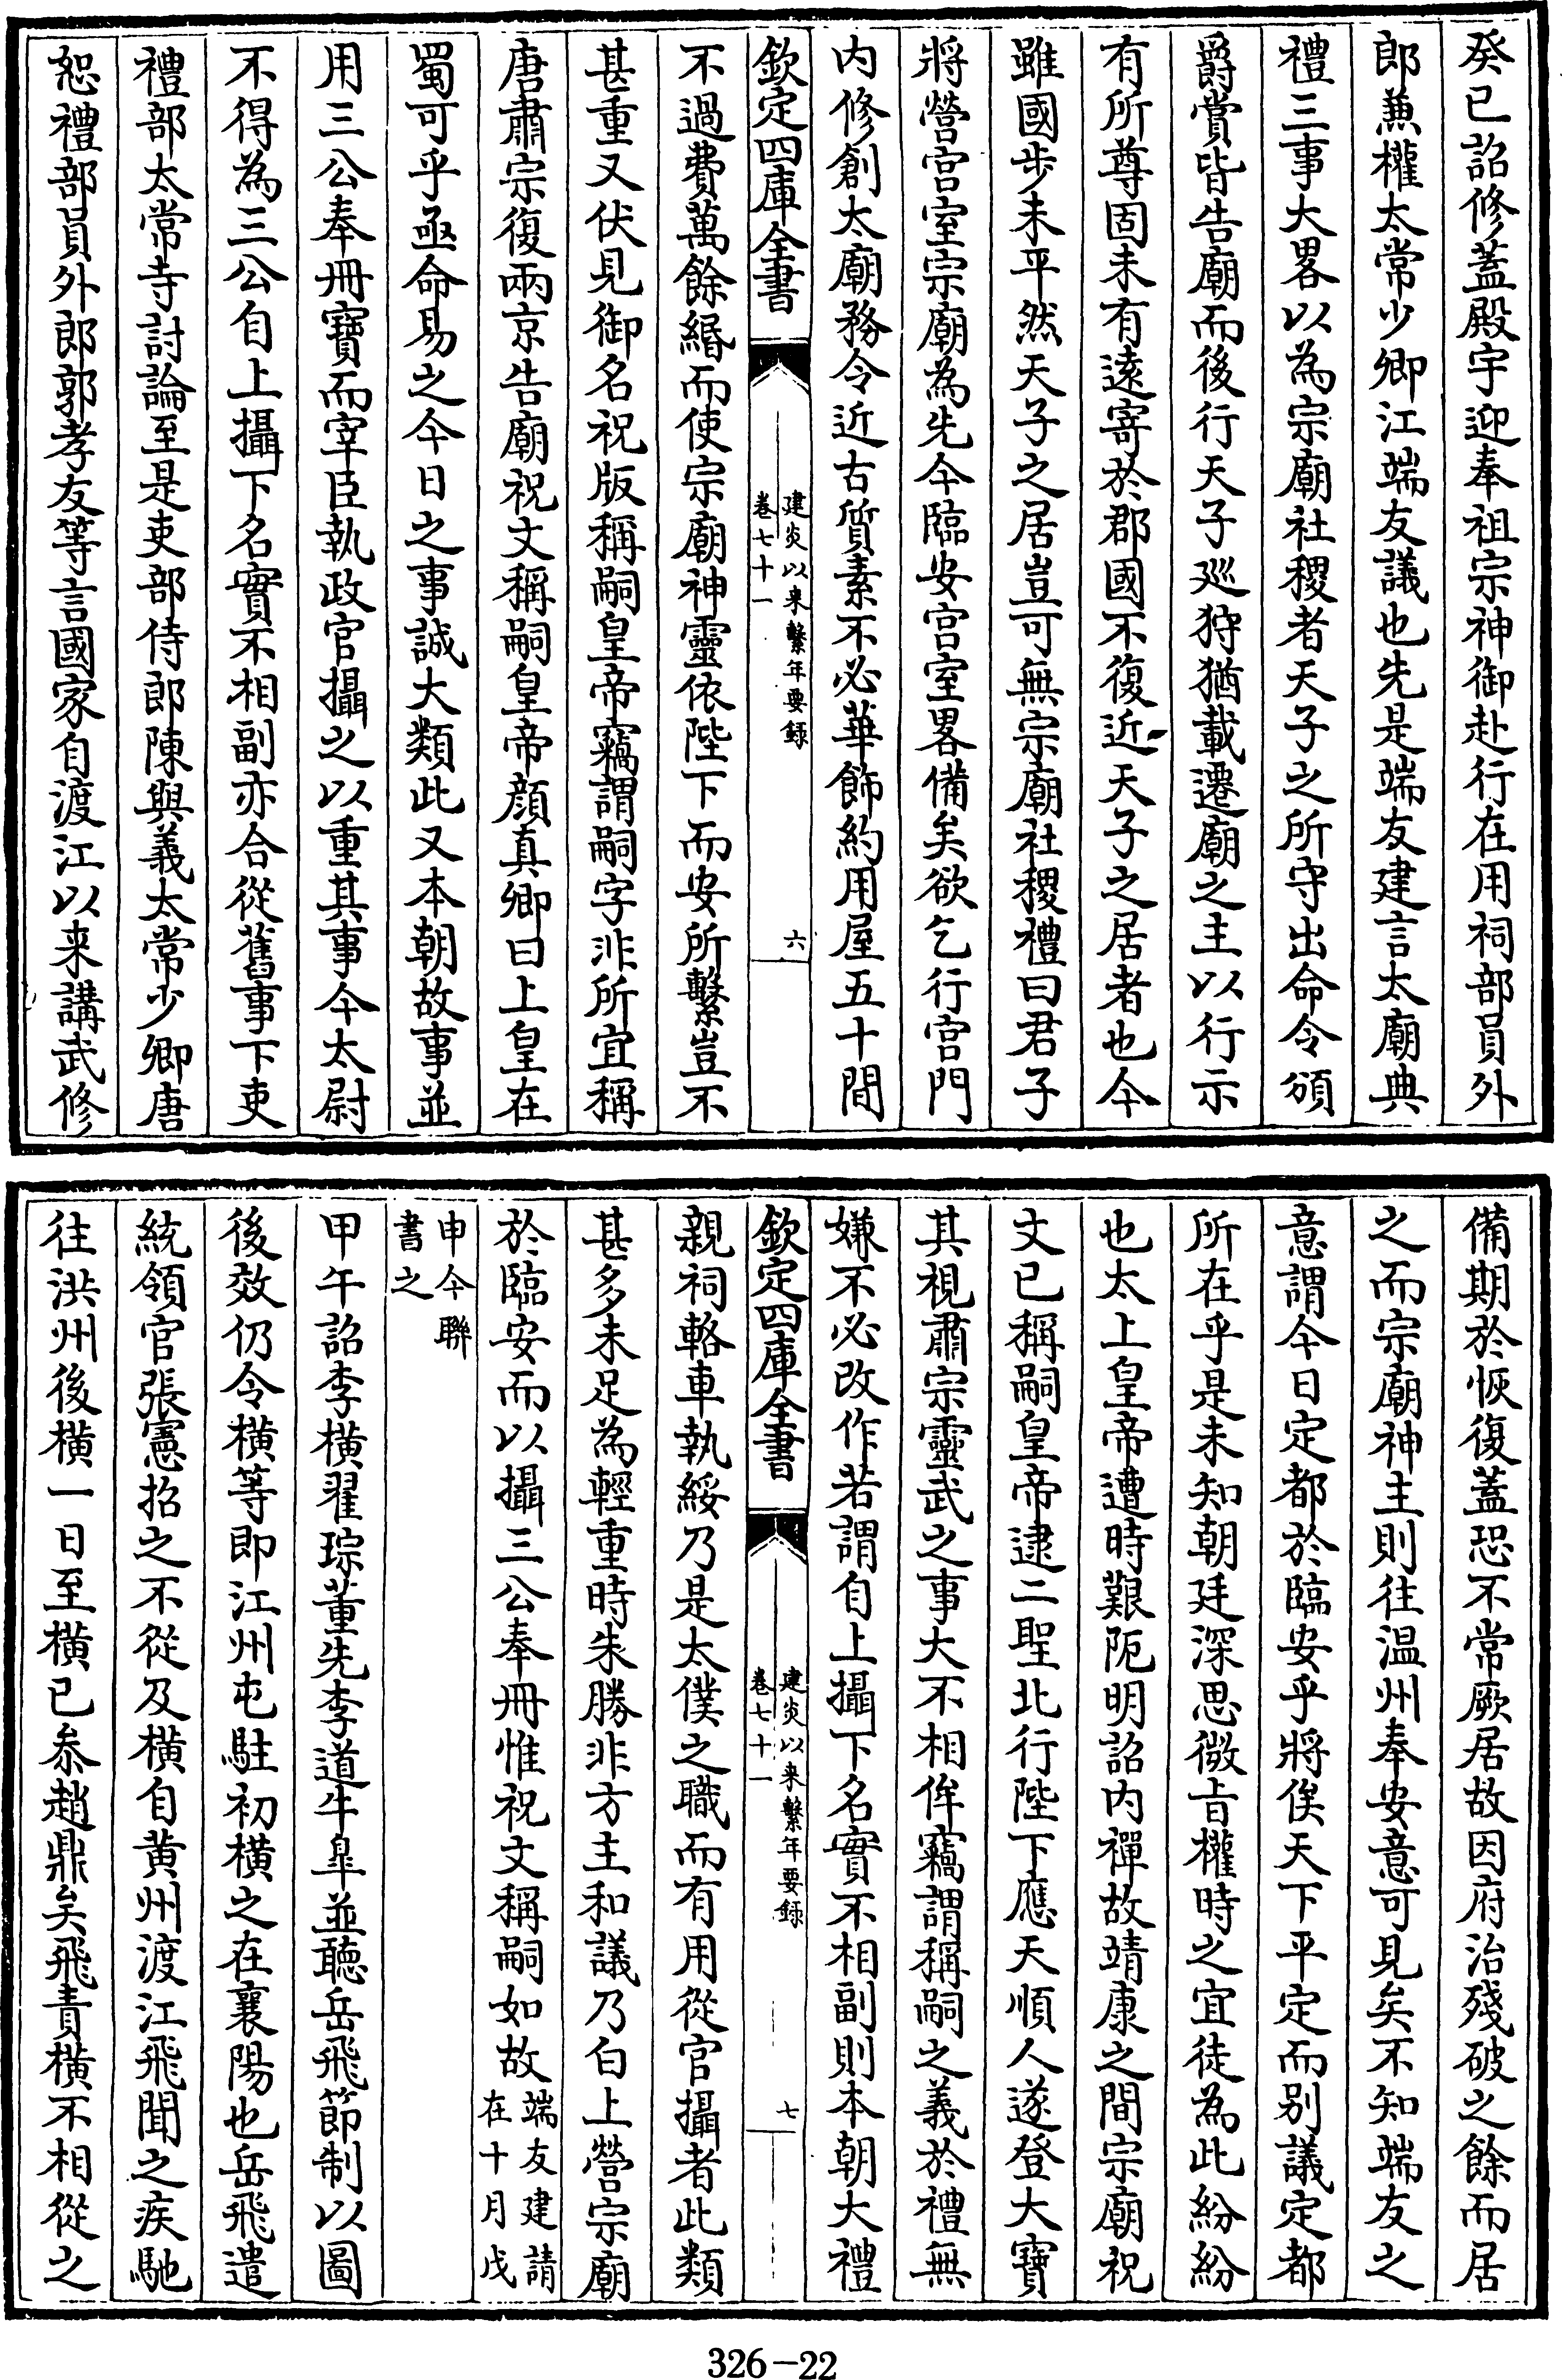 癸已詔修蓋殿宇迎奉祖宗神御赴行在用祠部員外
郎兼權太常少卿江端友議也先是端友建言太廟典
禮三事大畧以為宗廟社稷者天子之所守出命令頒
爵賞皆告廟而後行天子廵狩猶載遷廟之主以行示
有所尊固未有逺寄於郡國不復近天子之居者也今
雖國步未平然天子之居豈可無宗廟社稷禮曰君子
將營宫室宗廟為先今臨安宫室畧備矣欲乞行宫門
内修創太廟務令近古質素不必華飾約用屋五十間
欽定四庫全書
建炎以来繫年要録
卷七十一
六
不過費萬餘緡而使宗廟神靈依陛下而安所繫豈不
甚重又伏見御名祝版稱嗣皇帝竊謂嗣字非所宜稱
唐肅宗復兩京告廟祝文稱嗣皇帝顔真卿曰上皇在
蜀可乎亟命易之今日之事誠大類此又本朝故事並
用三公奉冊寶而宰臣執政官攝之以重其事今太尉
不得為三公自上攝下名實不相副亦合從舊事下吏
禮部太常寺討論至是吏部侍郎陳與義太常少卿唐
恕禮部員外郎郭孝友等言國家自渡江以来講武修
備期於恢復蓋恐不常厥居故因府治殘破之餘而居
之而宗廟神主則往温州奉安意可見矣不知端友之
意謂今日定都於臨安乎將俟天下平定而别議定都
所在乎是未知朝廷深思微㫖權時之宜徒為此紛紛
也太上皇帝遭時艱阨明詔内禪故靖康之間宗廟祝
文已稱嗣皇帝逮二聖北行陛下應天順人遂登大寶
其視肅宗靈武之事大不相侔竊謂稱嗣之義於禮無
嫌不必改作若謂自上攝下名實不相副則本朝大禮
欽定四庫全書
建炎以来繫年要録
卷七十一
七
親祠輅車執綏乃是太僕之職而有用從官攝者此類
甚多未足為輕重時朱勝非方主和議乃白上營宗廟
於臨安而以攝三公奉冊惟祝文稱嗣如故端友建請
在十月戊
申今聯
書之
甲午詔李横翟琮董先李道牛臯並聽岳飛節制以圖
後效仍令横等即江州屯駐初横之在襄陽也岳飛遣
統領官張憲招之不從及横自黄州渡江飛聞之疾馳
往洪州後横一日至横已叅趙鼎矣飛責横不相從之
326-22